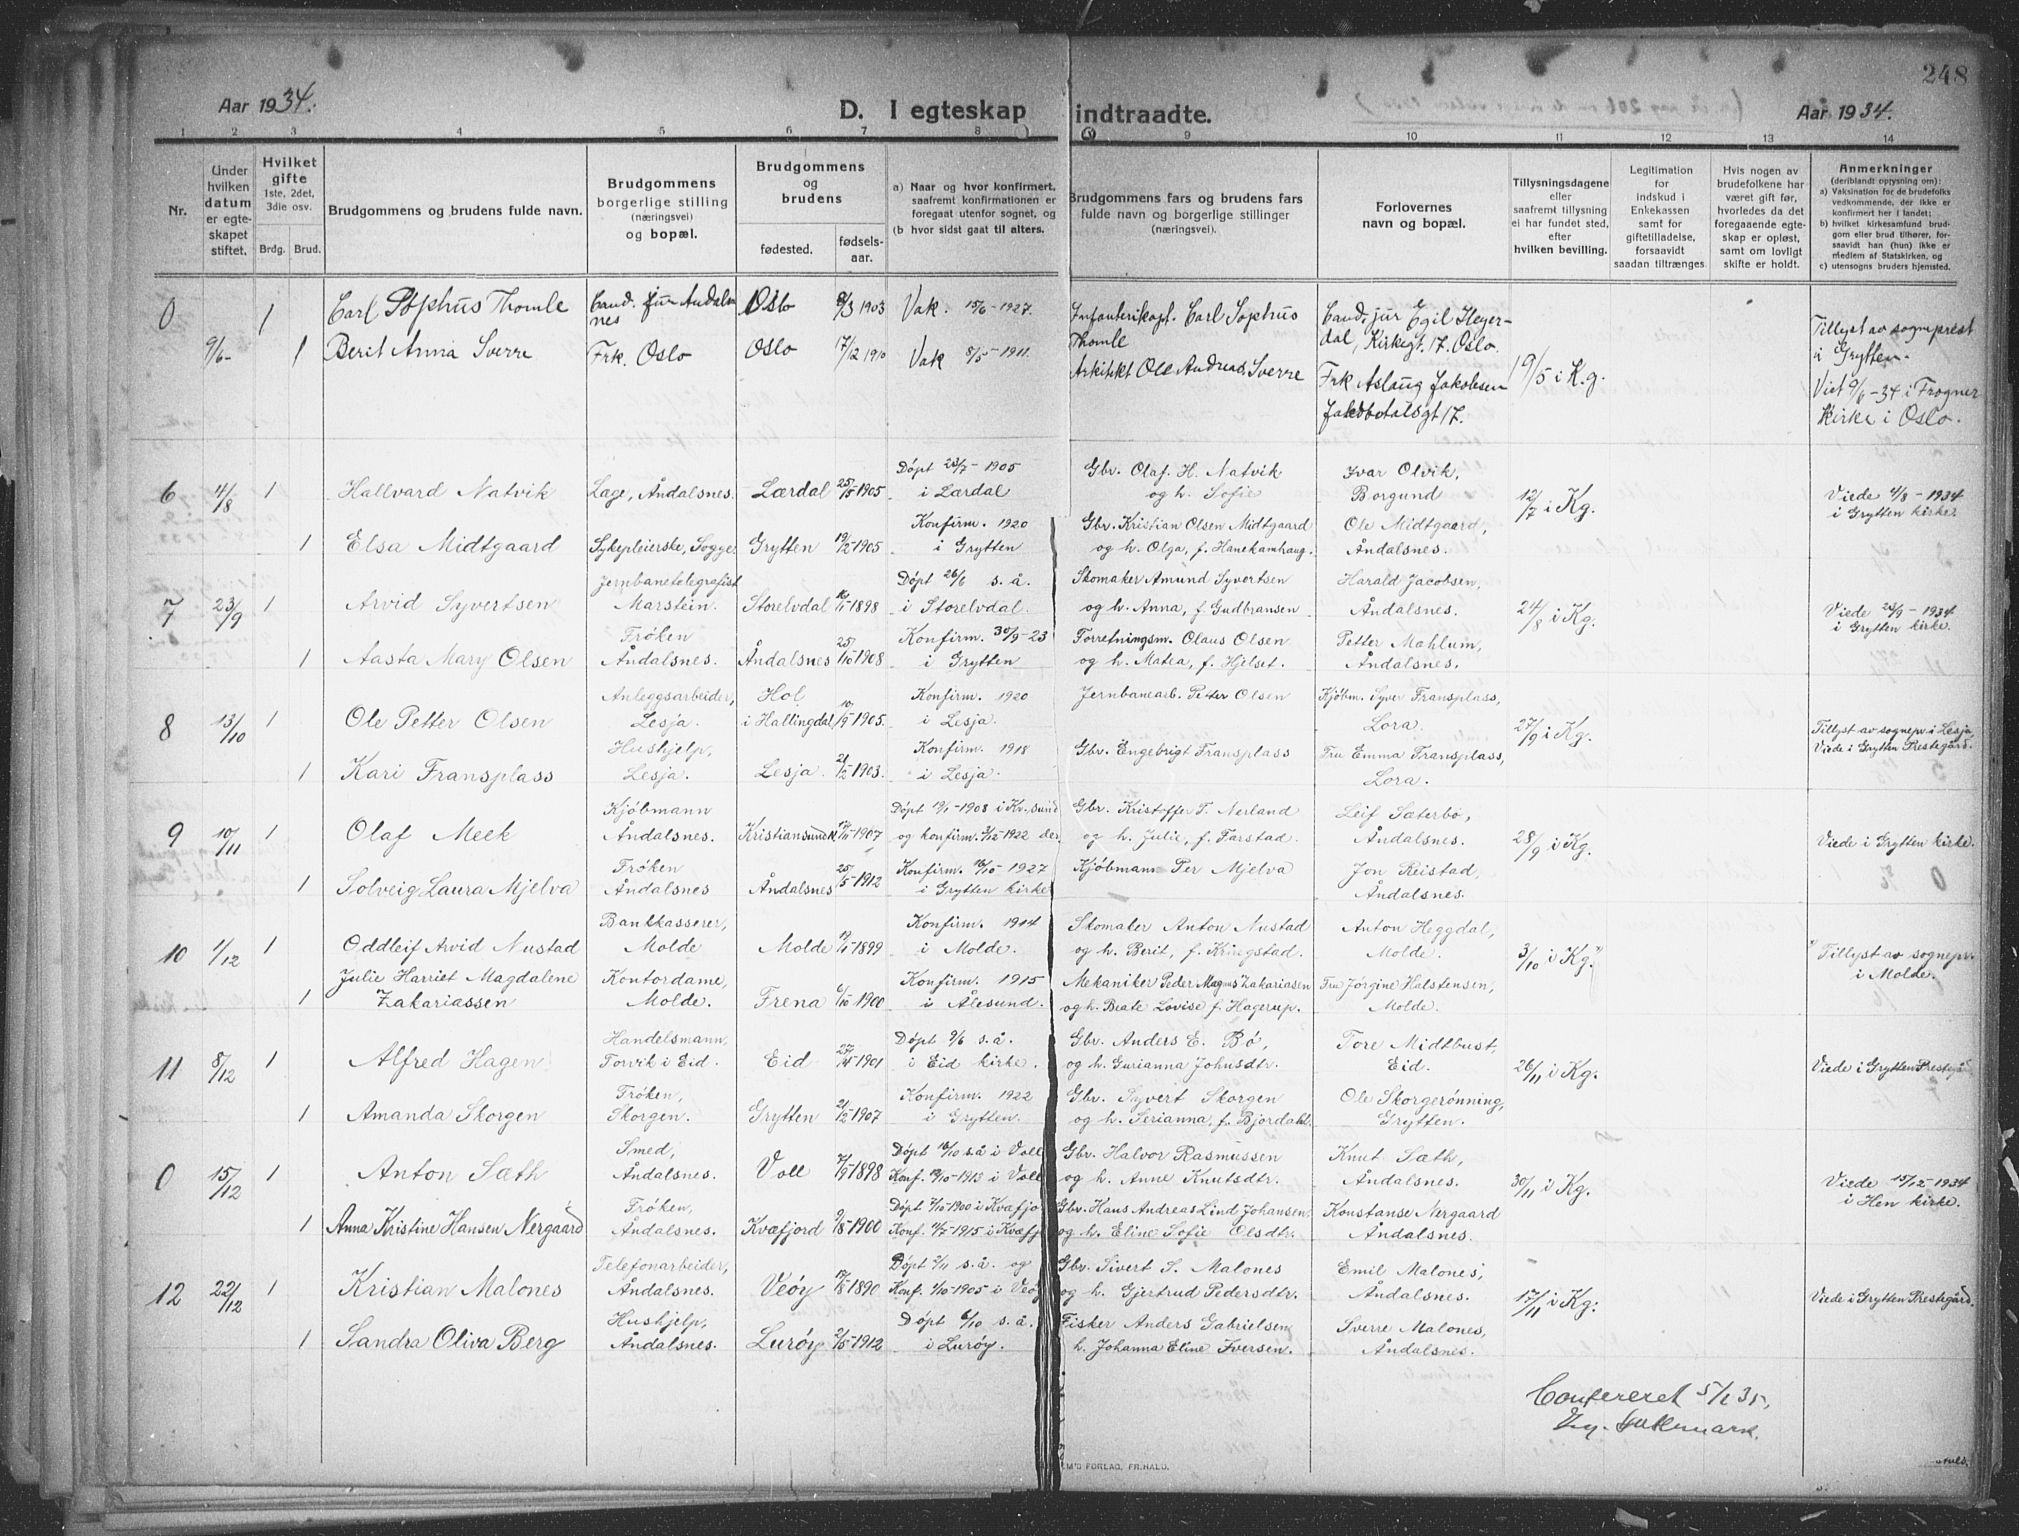 248
Aar 1934.
D. I egteskap indtraadte.
Aar 1934.
1 2 3 4 5 6 7 8 9 10 11 12 13 14
Nr.
Under hvilken datum er egteskapet stiftet.
Hvilket gifte 1ste, 2det, 3die osv.
Brdg. Brud.
Brudgommens og brudens fulde navn.
Brudgommens borgerlige stilling (næringsvei) og bopæl.
Brudgommens og brudens
fødested. fødsels-aar.
a) Naar og hvor konfirmert, saafremt konfirmationen er foregaat utenfor sognet, og
(b hvor sidst gaat til alters.
Brudgommens fars og brudens fars fulde navn og borgerlige stillinger (næringsvei).
Forlovernes navn og bopæl.
Tillysningsdagene eller saafremt tillysning ei har fundet sted, efter hvilken bevilling.
Legitimation for indskud i Enkekassen samt for giftetilladelse, forsaavidt saadan tiltrænges
Hvis nogen av brudefolkene har været gift før, hvorledes da det foregaaende egteskap er opløst, samt om lovligt skifte er holdt.
Anmerkninger (deriblandt oplysning om):
a) Vaksination for de brudefolks vedkommende, der ikke er konfirmert her i landet;
b) hvilket kirkesamfund brudgom eller brud tilhører, forsaavidt han (hun) ikke er medlem af Statskirken, og
c) utensogns bruders hjemsted.
0 1 Carl Sophus Thomle Cand. jur Andalsnes Oslo 1903 Vak. 15/6 - 1927. Infanterikapt. Carl Sophus Thomle Cand. jur Egil Heyerdal, Kirkegt. 17. Oslo.
9/6- 1 Berit Anna Sverre Frk. Oslo Oslo 17/12 1910 Vak 8/5 - 1911. Arkitekt Ole Andreas Sverre Frk Aslaug Jakobsen Jakobbotalsgt 17. 19/5 i K.g. Tillyst av sogneprest i Grytten. Viet 9/6 - 34 i Frogner Kirke i Oslo.
6 4/8 1 Hallvard Natvik Læge, Åndalsnes. Lærdal 25/5 1905 Døpt 23/7 - 1905 i Lærdal Gbr. Olaf H. Natvik og h. Sofie Ivar Olvik, Borgund 12/7 i Kg. Viede 4/8 - 1934 i Grytten kirke
1 Elsa Midtgaard Sykepleierske, Sogge Grytten 19/2 1905 Konfirm. 1920 i Grytten Gbr. Kristian Olsen Midtgaard og h. Olga, f. Hanekamhaug. Ole Midtgaard, Åndalsnes.
7 23/9 1 Arvid Syvertsen Jernbanetelegrafist Marstein. Storelvdal 1898 Døpt 26/6 s. å. i Storelvdal. Skomaker Amund Syvertsen og h. Anna, f. Gudbransen Harald Jacobsen, Åndalsnes. 24/8 i Kg. Viede 23/9 - 1934 i Grytten kirke.
1 Aasta Mary Olsen Frøken Åndalsnes. Åndalsnes 25/10 1908 Konfirm. 30/9 - 23 i Grytten Forretningsm. Olaus Olsen og h. Matea, f. Hjelset. Petter Mahlum, Åndalsnes.
8 13/10 1 Ole Petter Olsen Anleggsarbeider, Lesja. Hol i Hallingdal 10/9 1905. Konfirm. 1920 i Lesja. Jernbanearb. Peter Olsen Kjøbm. Syver Fransplass, Lora. 27/9 i Kg. Tillyst av sognepr. i Lesja, Viede i Grytten Prestegård.
1 Kari Fransplass Hushjelp, Lesja. Lesja. 21/2 1903. Konfirm. 1918 i Lesja. Gbr. Engebrigt Fransplass Fru Emma Fransplass, Lora.
9 10/11 1 Olaf Meek Kjøbmann Åndalsnes. Kristiansund N. 17/11 1907 Døpt 19/1 - 1908 i Kr. sund og konfirm. 3/12 - 1922 der. Gbr. Kristoffer T. Nerland og h. Julie, f. Farstad. Leif Sæterbø, Åndalsnes. 28/9 i Kg. Viede i Grytten kirke.
1 Solveig Laura Mjelva Frøken Åndalsnes Åndalsnes 25/5 - 1912 Konfirm. 16/10 - 1927 i Grytten kirke Kjøbmann Per Mjelva Jon Reistad, Åndalsnes.
10 1/12 1 Oddleif Arvid Nustad Bankkasserer, Molde Molde 1899 Konfirm. 1914 i Molde. Skomaker Anton Nustad og h. Berit, f. Kringstad. Anton Heggdal, Molde. 3/10 i Kg." " Tillyst av sognepr. i Molde.
1 Julie Harriet Magdalene Zakariassen Kontordame, Molde. Frena 6/10 1900 Konfirm. 1915 i Ålesund. Mekaniker Peder Magnus Zakariasen og h. Beate Lovise f. Hagerup. Fru Jørgine Halstensen, Molde.
11 8/12 1 Alfred Hagen Handelsmann, Torvik i Eid. Eid 27/4 1901 Døpt 9/6 s. å. i Eid kirke. Gbr. Anders E. Bø, og h. Gurianna Johnsdtr. Tore Midtbust, Eid. 26/11 i Kg. Viede i Grytten Prestegård
1 Amanda Skorgen Frøken, Skorgen. Grytten 21/2 1907 Konfirm. 1922 i Grytten. Gbr. Syvert Skorgen og h. Serianna, f. Bjordahl. Ole Skorgerønning, Grytten.
0 15/12 1 Anton Sæth Smed, Åndalsnes. Voll 1898 Døpt 16/10 s. å i Voll Konf. 19/10 - 1913 i Voll Gbr. Halvor Rasmussen og h. Anne Knutsdtr. Knut Sæth, Åndalsnes. 30/11 i Kg. Viede 15/12 - 1934 i Hen kirke.
1 Anna Kristine Hansen Nergaard Frøken, Åndalsnes. Kvæfjord 9/8 1900 Døpt 7/10 - 1900 i Kvæfjo Konf. 11/7 - 1915 i Kvæfj Gbr. Hans Andreas Lind Johansen, og h. Eline Sofie Olsdtr. Konstanse Nergaard Åndalsnes.
12 22/12 1 Kristian Malones Telefonarbeider, Åndalsnes. Veøy 1890 Døpt 2/11 s. å. og Konf. 1/10 - 1905 i Veøy Gbr. Sivert S. Malones og h. Gjertrud Pedersdtr. Emil Malones, Åndalsnes. 17/11 i Kg. Viede i Grytten Prestegård.
1 Sandra Oliva Berg Hushjelp, Åndalsnes. Lurøy 2/5 1912 Døpt 6/10 s. å. i Lurøy. Fisker Anders Gabrielsen h. Johanna Eline Iversen. Sverre Malones, Åndalsnes.
Confereret 5/1 35,
FORLAG, FR.HALD.